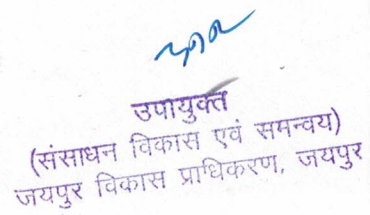 उपायुक्त
(संसाधन विकास एवं समन्वय)
जयपुर विकास प्राधिकरण, जयपुर